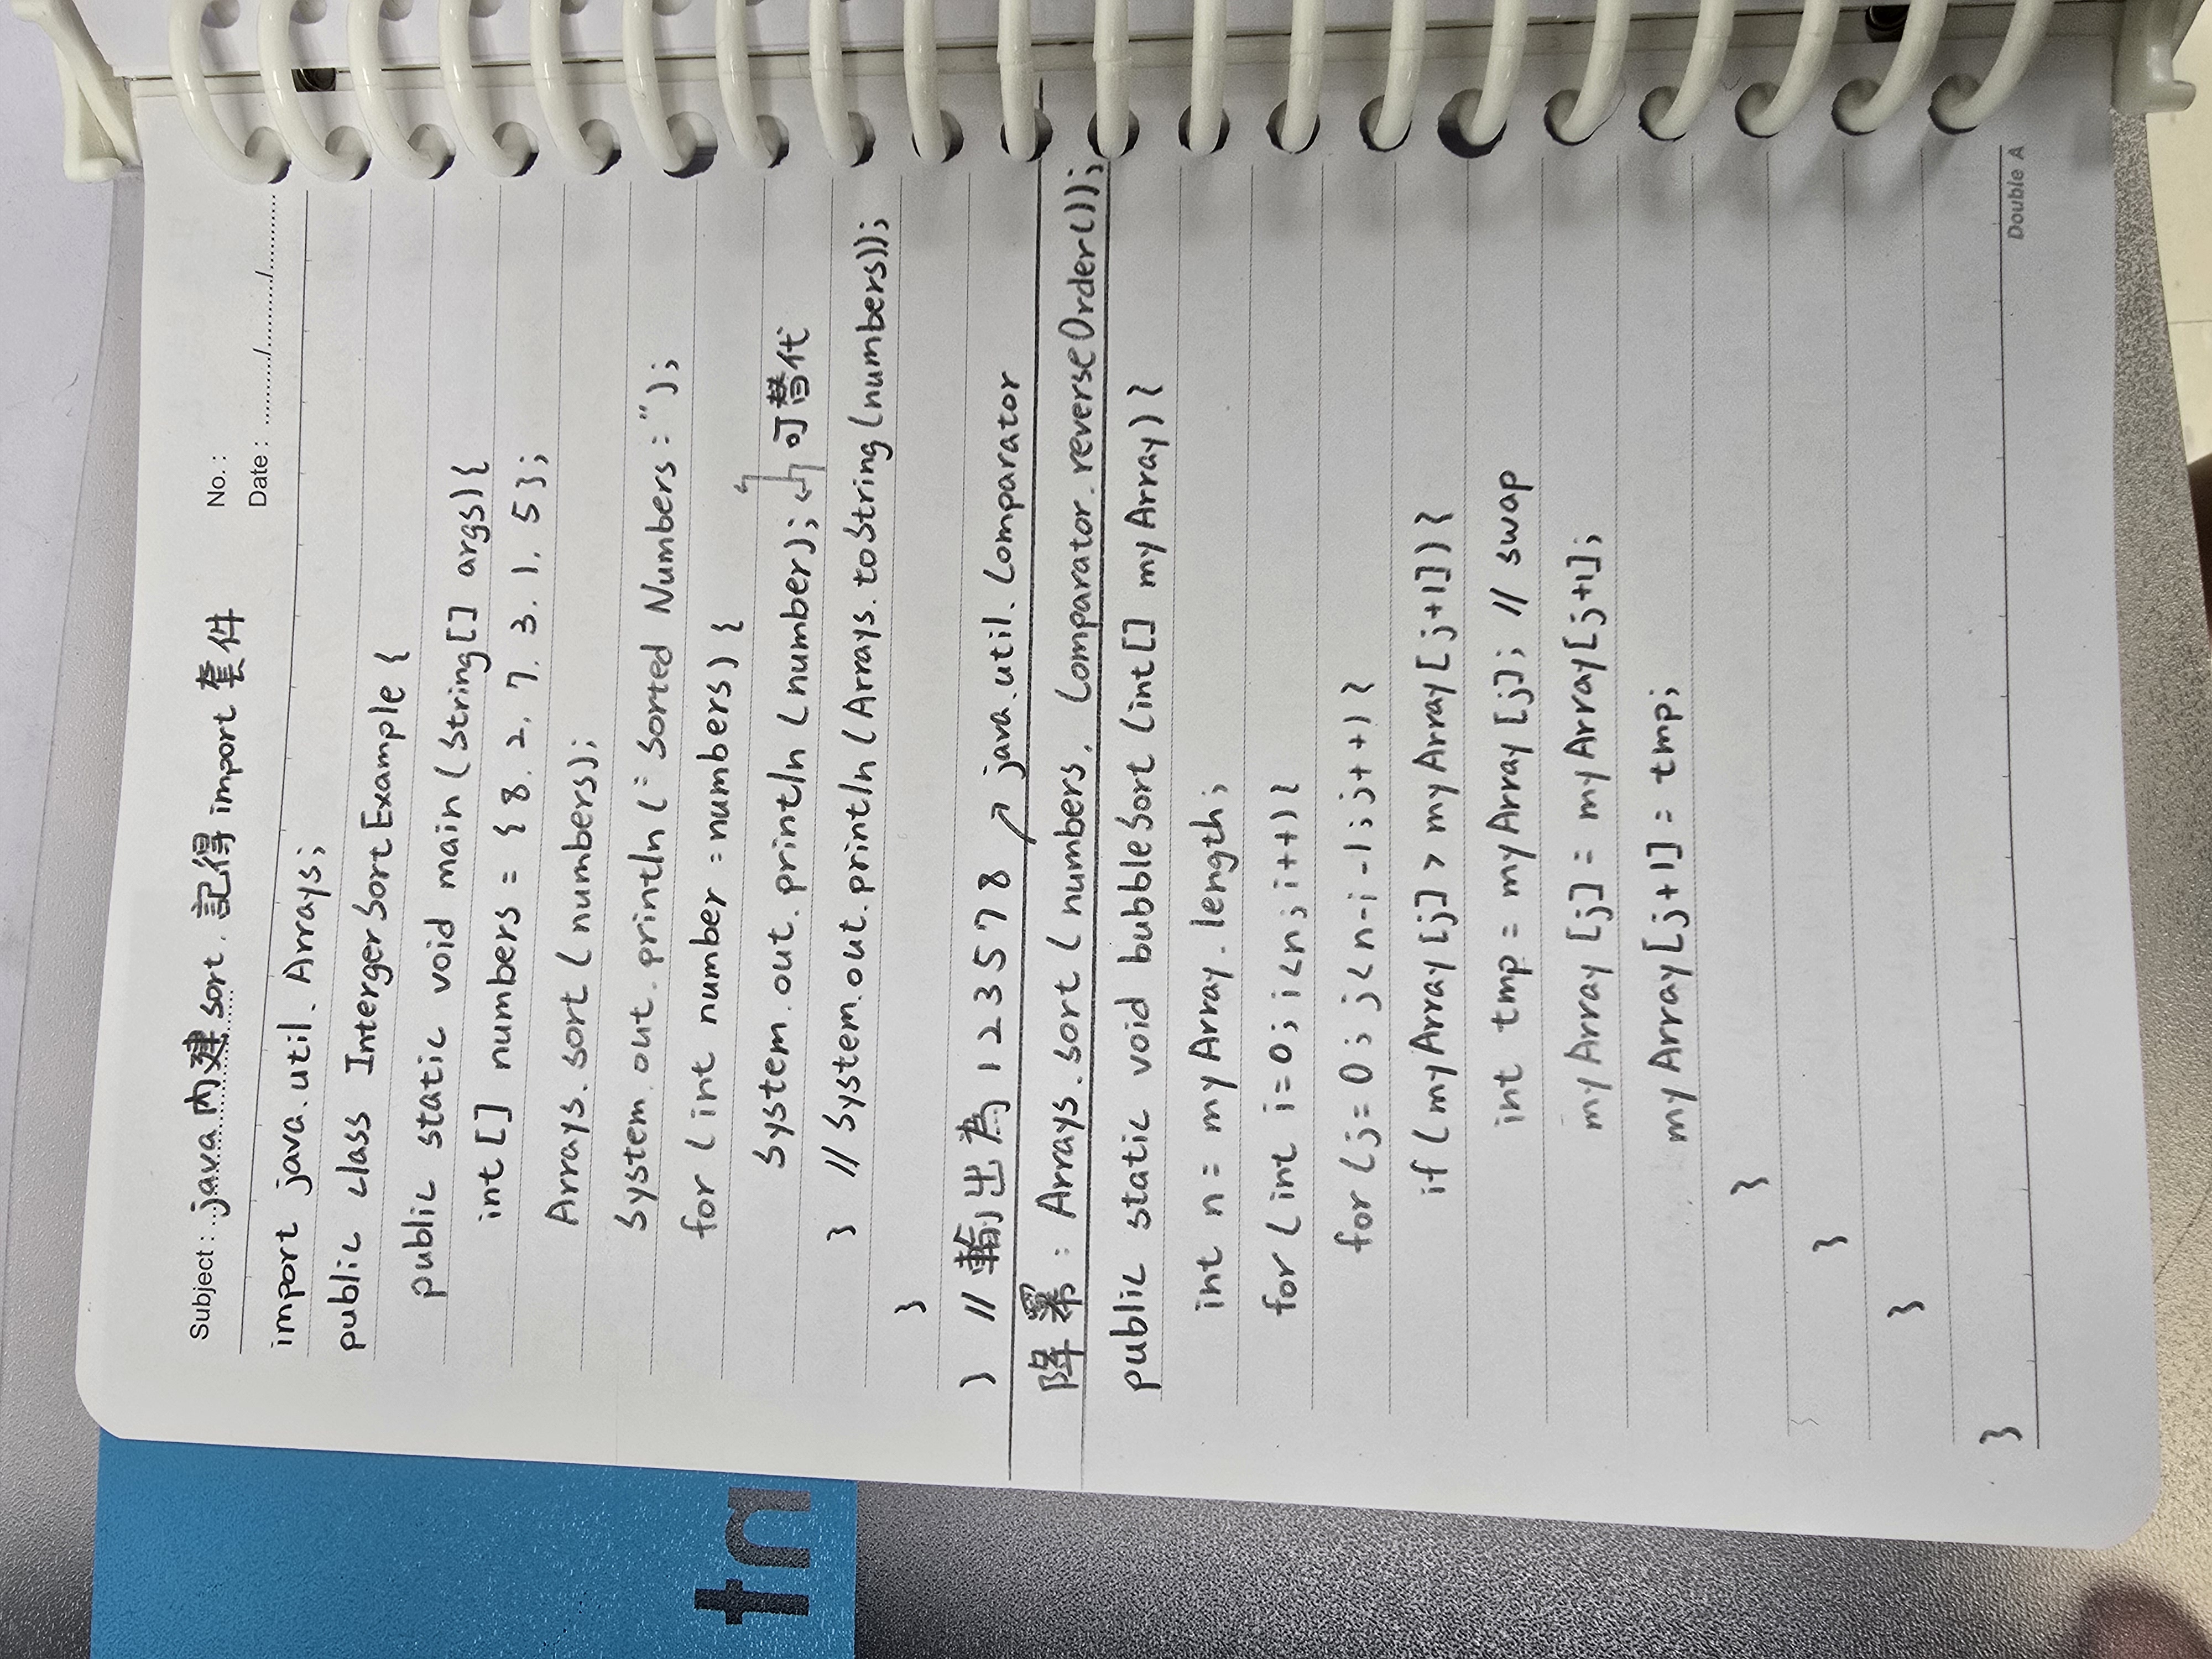 Subject : java 內建 sort. 記得 import 套件
No. :
Date : ........../........../...........
import java.util.Arrays;
public class IntergerSortExample {
public static void main (String[] args){
int [] numbers = {8. 2. 7. 3. 1. 5};
Arrays.sort (numbers);
System.out.println ("Sorted Numbers:");
for (int number :numbers) {
System.out.println (number); 可替代
} // System.out.println (Arrays.toString (numbers));
}
} // 輸出為 1 2 3 5 7 8 ↗ java.util.Comparator
降冪: Arrays.sort (numbers. Comparator.reverseOrder());
public static void bubbleSort (int[] myArray) {
int n = myArray.length;
for (int i=0; i<n; i++) {
for (j=0; j<n-i-1; j++) {
if (myArray[j] > myArray[j+1]) {
int tmp = myArray[j]; // swap
myArray[j] = myArray[j+1];
myArray[j+1] = tmp;
}
}
}
}
Double A